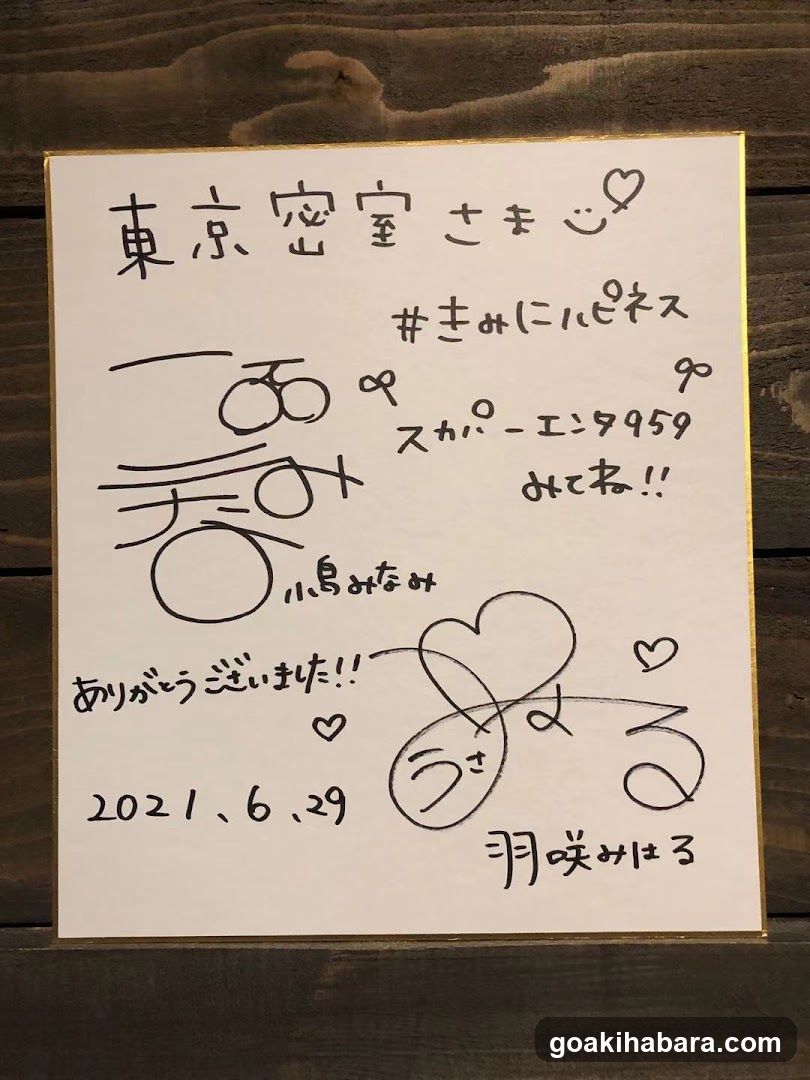 東京密室さま
#きみにハピネス
スカパーエンタ959
みてね!!
小島みなみ
ありがとうございました!!
うさ
はる
2021、6、29
羽咲みはる
goakihabara.com